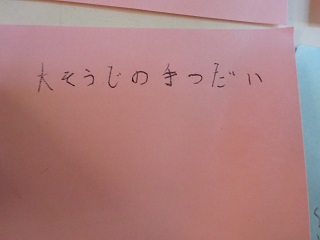 大そうじの手つだい